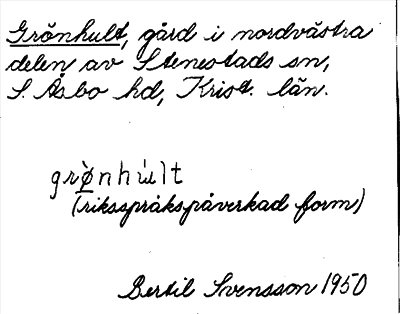 Grönhult, gård i nordvästra
delen av Stenestads sn,
S. Åsbo hd, Krist. län.
grø̀nhùlt
(riksspråkspåverkad form)
Bertil Svensson 1950